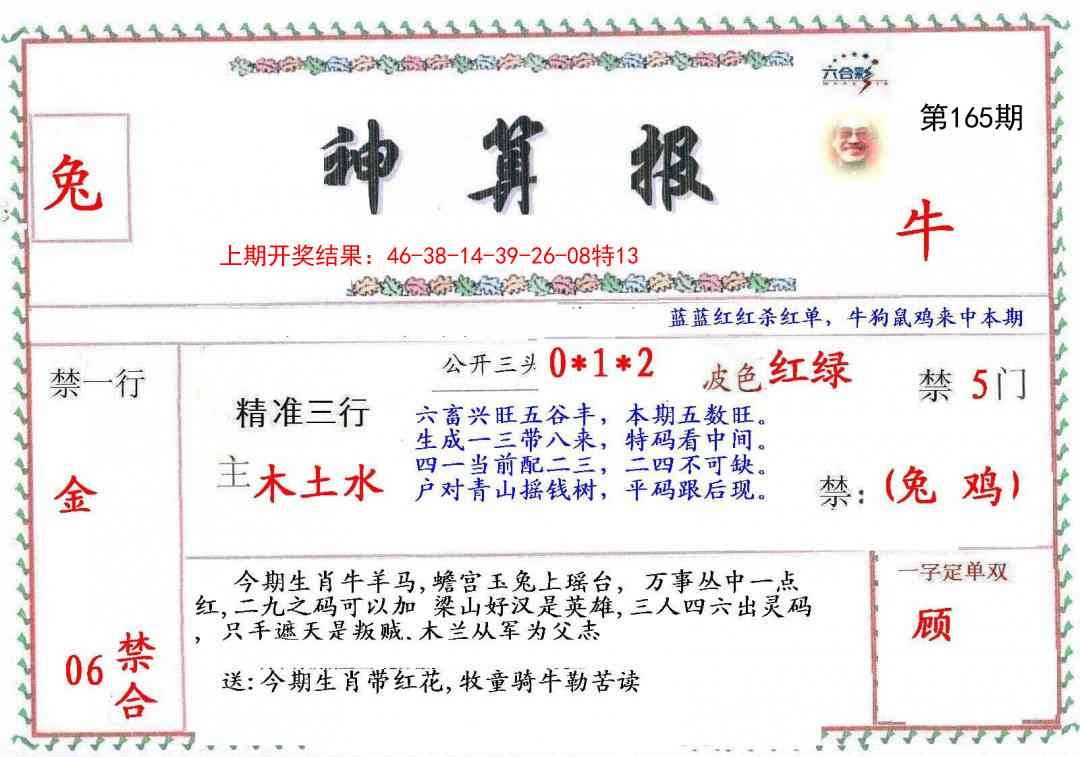 六合彩
第165期
兔
神算报
牛
上期开奖结果：46-38-14-39-26-08特13
蓝蓝红红杀红单，牛狗鼠鸡来中本期
禁一行
公开三头 0*1*2
波色 红绿
禁 5门
精准三行
六畜兴旺五谷丰，本期五数旺。
生成一三带八来，特码看中间。
四一当前配二三，二四不可缺。
户对青山摇钱树，平码跟后现。
主 木土水
金
禁：(兔 鸡)
今期生肖牛羊马,蟾宫玉兔上瑶台，万事丛中一点
红,二九之码可以加 梁山好汉是英雄,三人四六出灵码
，只手遮天是叛贼.木兰从军为父志
送:今期生肖带红花,牧童骑牛勒苦读
一字定单双
顾
06 禁合